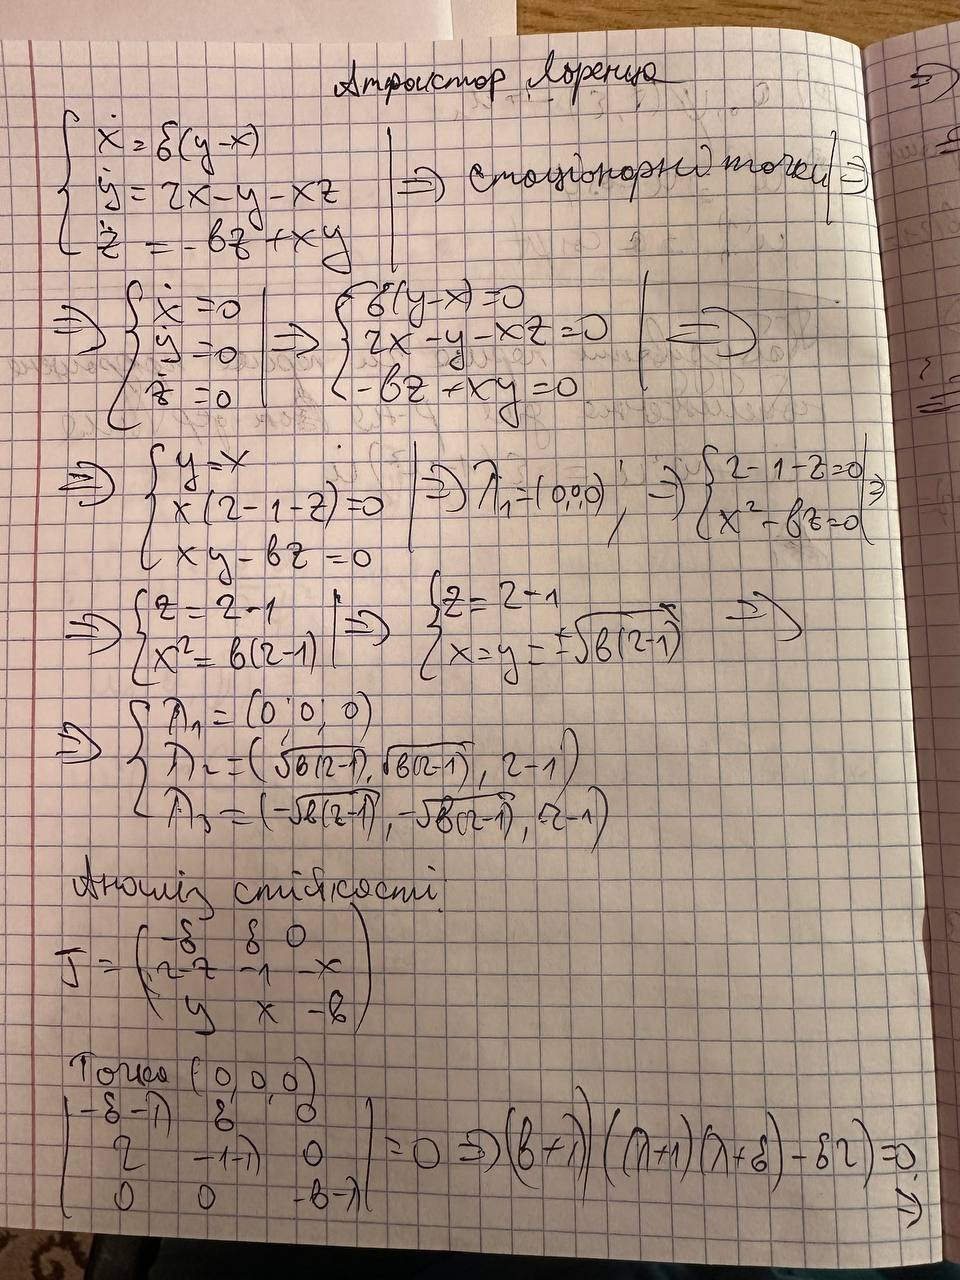 Атрактор Лоренца
{ ẋ = δ(y-x)
ẏ = rx-y-xz | => стаціонарні точки | =>
ż = -bz+xy
=> { ẋ = 0; ẏ = 0; ż = 0 | => { δ(y-x)=0; rx-y-xz=0; -bz+xy=0 | =>
=> { y=x; x(r-1-z)=0; xy-bz=0 | => λ₁=(0,0,0); => { r-1-z=0; x²-bz=0 | =>
=> { z=r-1; x²=b(r-1) | => { z=r-1; x=y=±√b(r-1) =>
=> { λ₁ = (0; 0; 0)
λ₂ = (√b(r-1), √b(r-1), r-1)
λ₃ = (-√b(r-1), -√b(r-1), r-1)
Аналіз стійкості
J = ( -δ δ 0
r-z -1 -x
y x -b )
Точка (0, 0, 0)
| -δ-λ δ 0 |
| r -1-λ 0 | = 0 => (b+λ)((λ+1)(λ+δ)-δr)=0 =>
| 0 0 -b-λ |